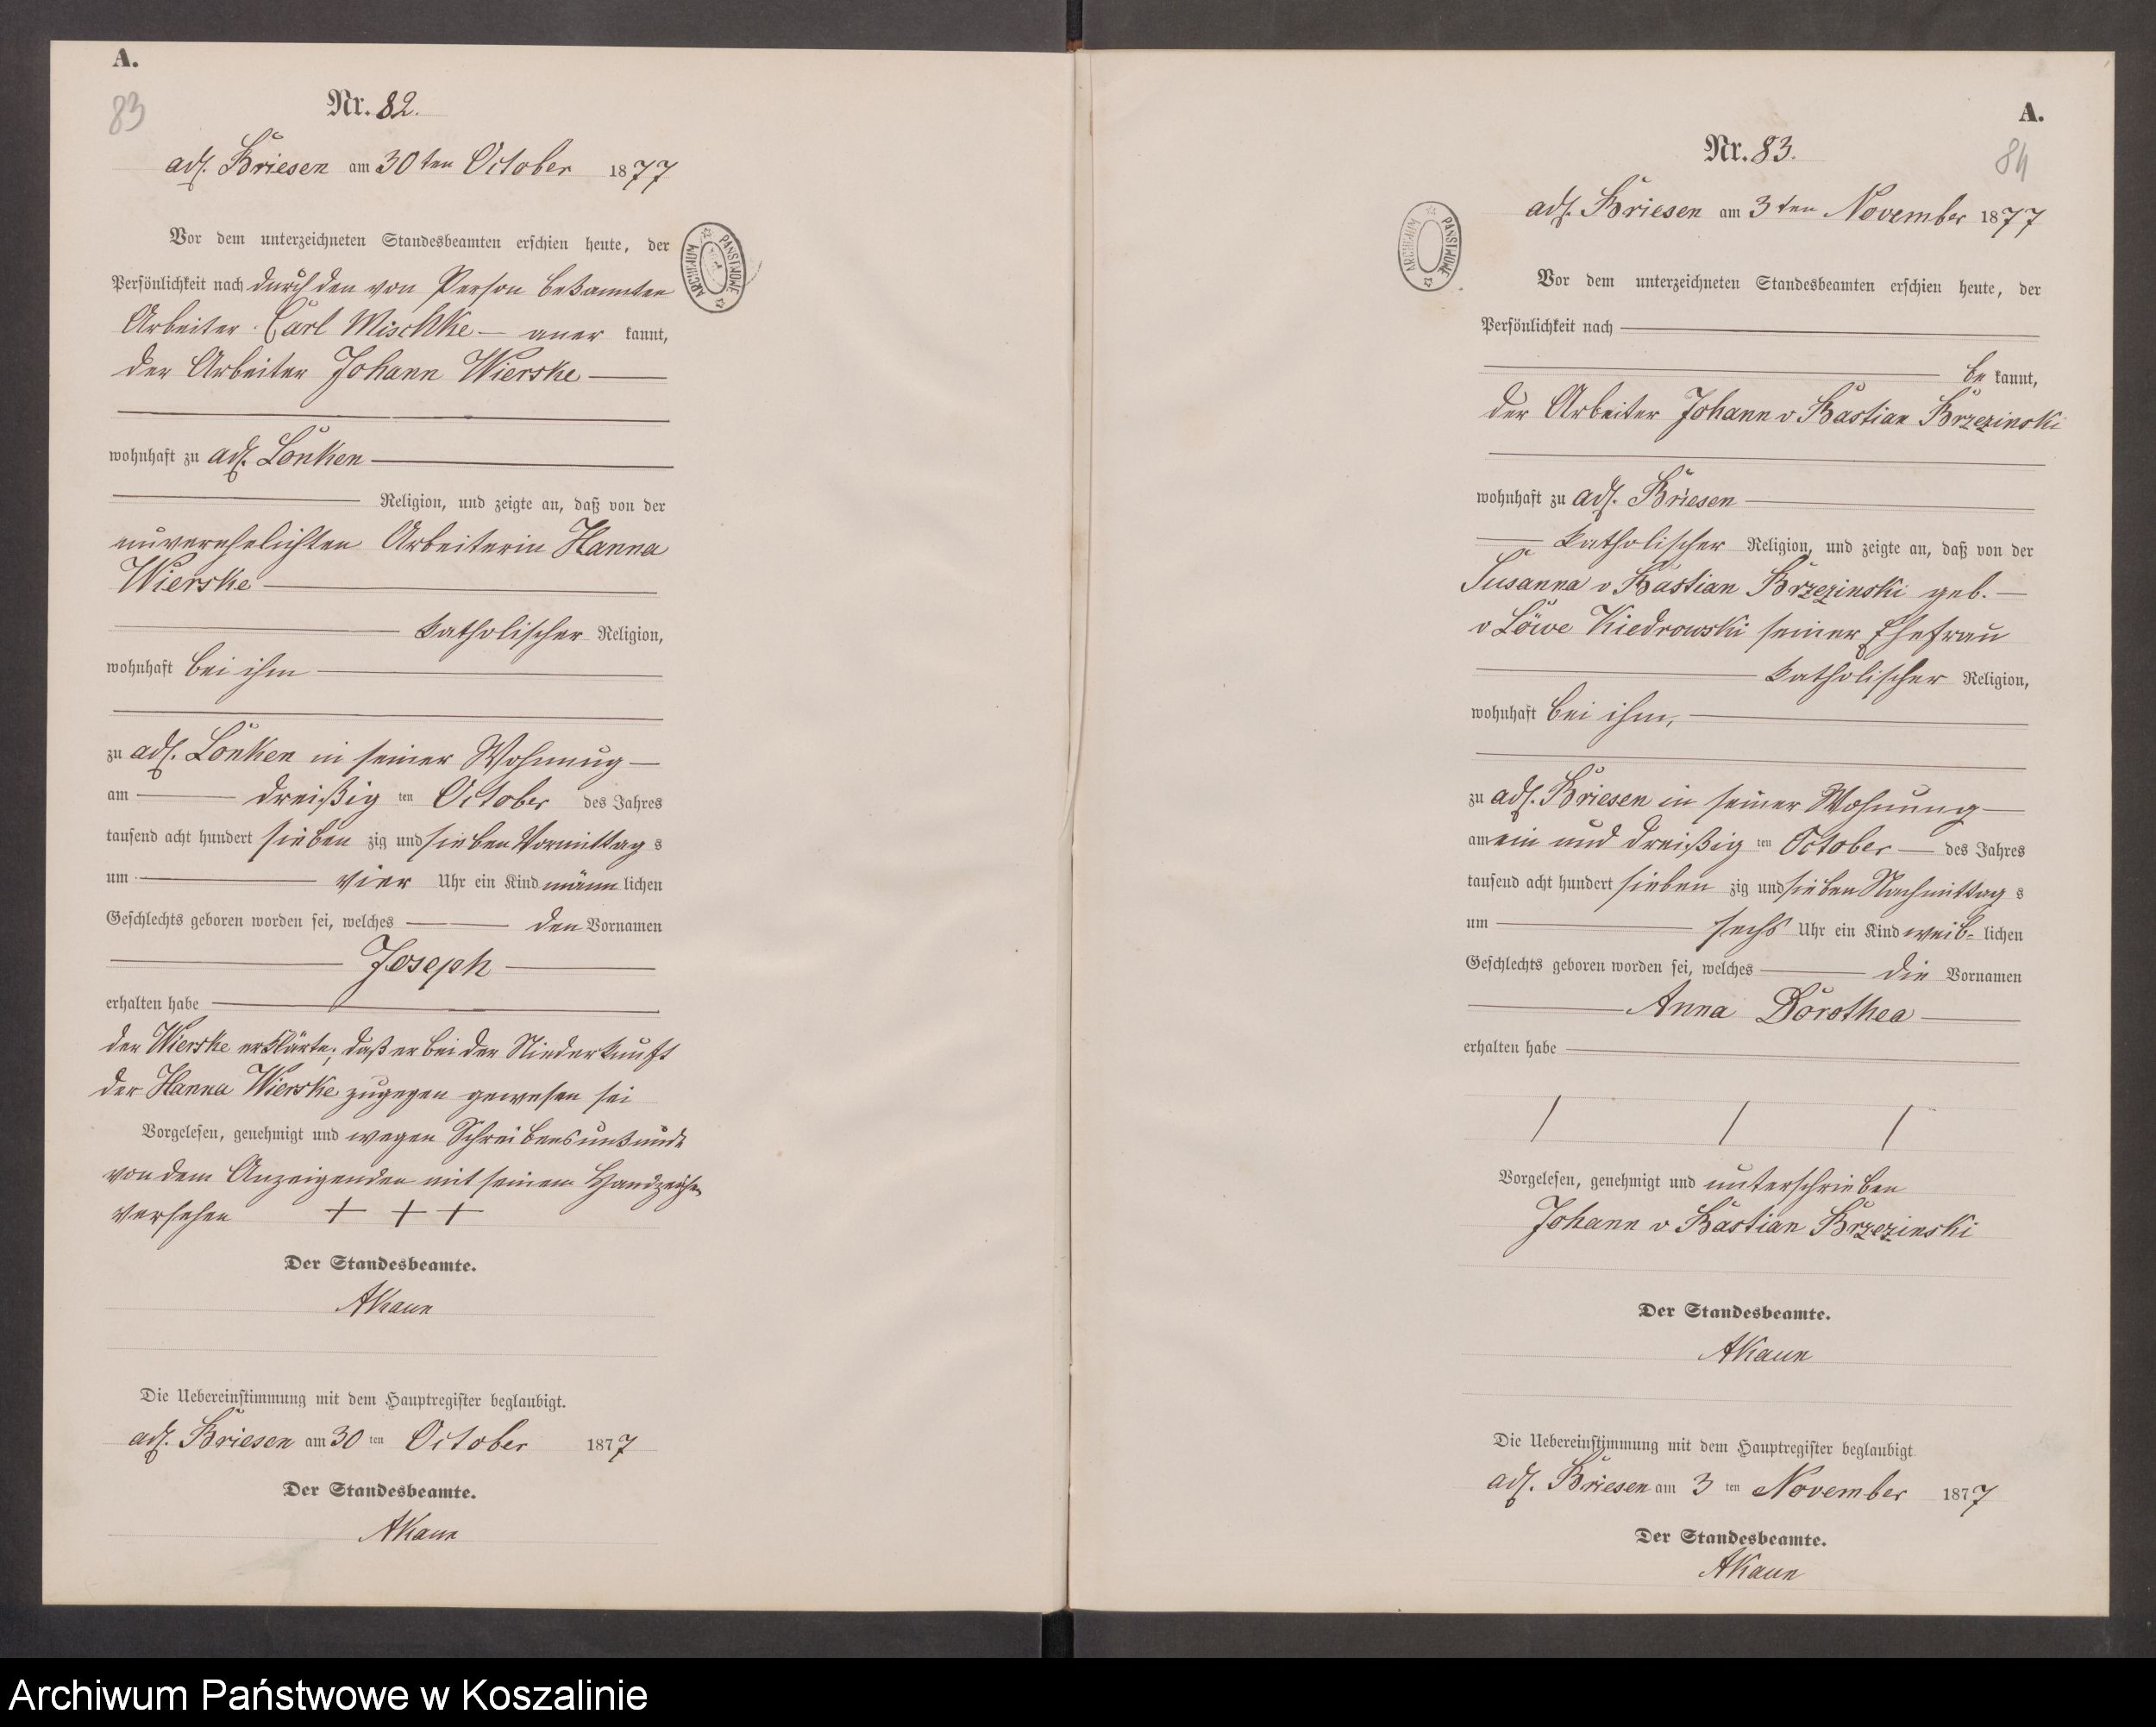 A.
83
Nr. 82.
adl. Briesen am 30ten October 1877
Vor dem unterzeichneten Standesbeamten erschien heute, der
Persönlichkeit nach durch den von Person bekannten
Arbeiter Carl Mischke — aner kannt,
der Arbeiter Johann Wierske
wohnhaft zu adl. Lonken
Religion, und zeigte an, daß von der
unverehelichten Arbeiterin Hanna
Wierske
katholischer Religion,
wohnhaft bei ihm
zu adl. Lonken in seiner Wohnung
am dreißig ten October des Jahres
tausend acht hundert sieben zig und sieben Vormittag s
um vier Uhr ein Kind männ lichen
Geschlechts geboren worden sei, welches den Vornamen
Joseph
erhalten habe
der Wierske erklärte, daß er bei der Niederkunft
der Hanna Wierske zugegen gewesen sei
Vorgelesen, genehmigt und wegen Schreibensunkunde
von dem Anzeigenden mit seinem Handzeichen
versehen + + +
Der Standesbeamte.
AKaun
Die Uebereinstimmung mit dem Hauptregister beglaubigt.
adl. Briesen am 30 ten October 1877
Der Standesbeamte.
AKaun
ARCHIWUM PAŃSTWOWE
A.
84
Nr. 83.
adl. Briesen am 3ten November 1877
ARCHIWUM PAŃSTWOWE
Vor dem unterzeichneten Standesbeamten erschien heute, der
Persönlichkeit nach
be kannt,
der Arbeiter Johann v Bastian Brzezinski
wohnhaft zu adl. Briesen
katholischer Religion, und zeigte an, daß von der
Susanna v Bastian Brzezinski geb.
v Löwe Kiedrowski seiner Ehefrau
katholischer Religion,
wohnhaft bei ihm,
zu adl. Briesen in seiner Wohnung
am ein und dreißig ten October des Jahres
tausend acht hundert sieben zig und sieben Nachmittag s
um sechs Uhr ein Kind weib- lichen
Geschlechts geboren worden sei, welches die Vornamen
Anna Dorothea
erhalten habe
Vorgelesen, genehmigt und unterschrieben
Johann v Bastian Brzezinski
Der Standesbeamte.
AKaun
Die Uebereinstimmung mit dem Hauptregister beglaubigt
adl. Briesen am 3 ten November 1877
Der Standesbeamte.
AKaun
Archiwum Państwowe w Koszalinie